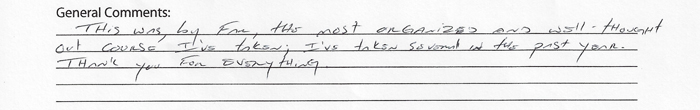 General Comments:
This was, by far, the most organized and well-thought
out course I've taken; I've taken several in the past year.
Thank you for everything.